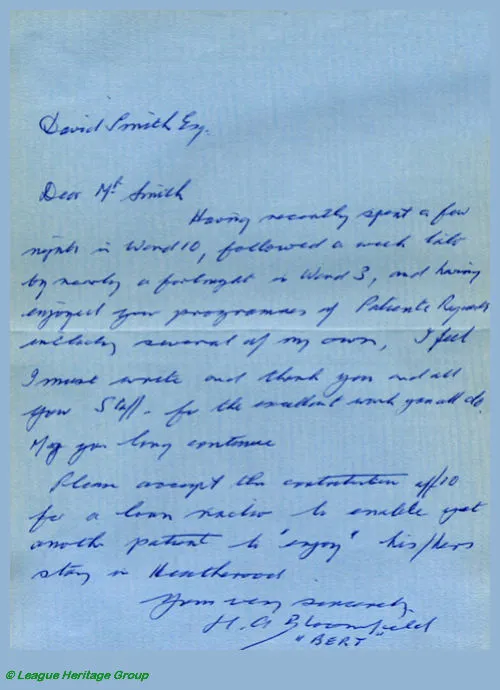 David Smith Esq.
Dear Mr. Smith
Having recently spent a few
nights in Ward 10, followed a week late
by nearly a fortnight in Ward 3, and having
enjoyed your programmes of Patients Requests
including several of my own, I feel
I must write and thank you and all
your Staff. for the excellent work you all do.
May you long continue
Please accept this contribution of £10
for a loan radio to enable yet
another patient to "enjoy" his/hers
stay in Heatherwood
Yours very sincerely.
H. A Bloomfield
"BERT"
© League Heritage Group